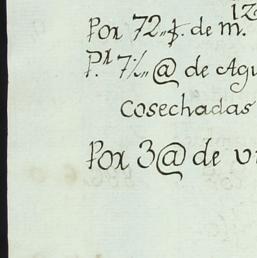 12
Por 72 $. de m.
P.r 7½ @ de Agu
cosechadas
Por 3@ de vi